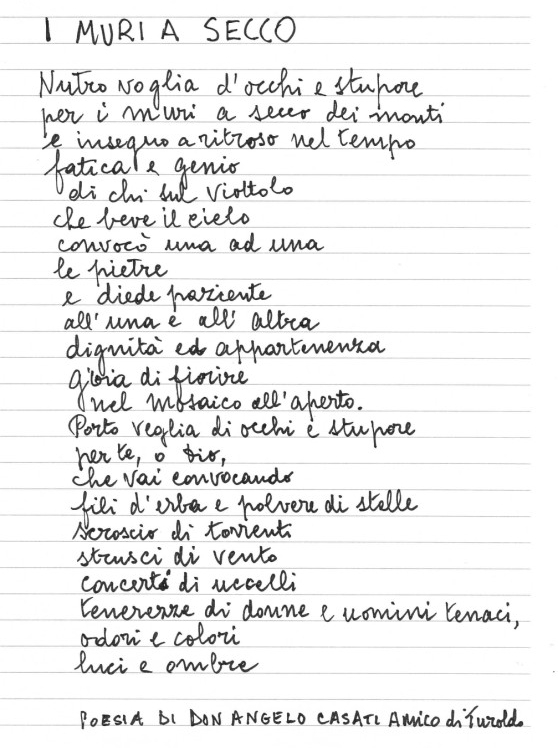 I MURI A SECCO
Nutro voglia d'occhi e stupore
per i muri a secco dei monti
e inseguo a ritroso nel tempo
fatica e genio
di chi sul viottolo
che beve il cielo
convocò una ad una
le pietre
e diede paziente
all'una e all'altra
dignità ed appartenenza
gioia di fiorire
nel mosaico all'aperto.
Porto veglia di occhi e stupore
per te, o Dio,
che vai convocando
fili d'erba e polvere di stelle
scroscio di torrenti
strusci di vento
concerti di uccelli
tenerezze di donne e uomini tenaci,
odori e colori
luci e ombre
POESIA DI DON ANGELO CASATI AMICO di Turoldo